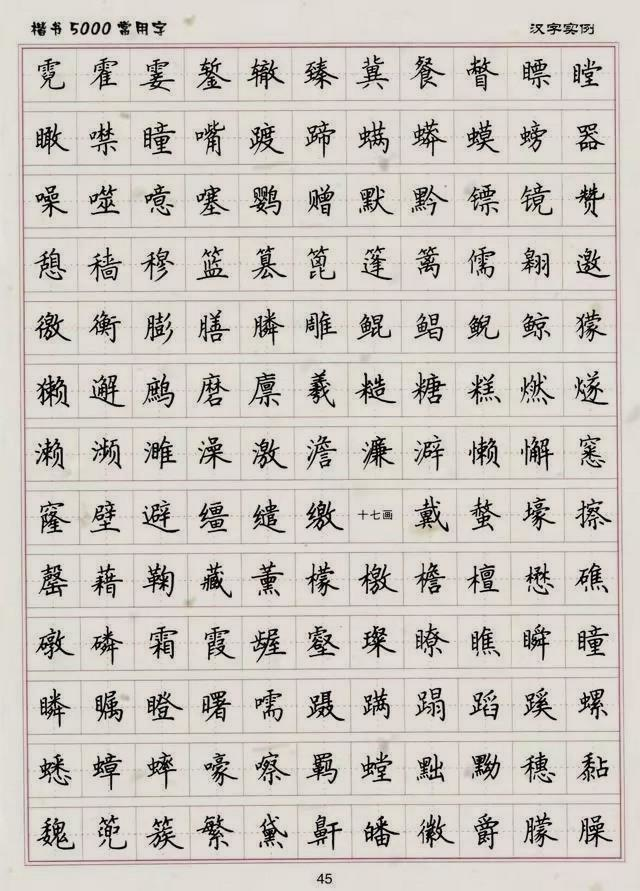 楷书5000常用字 汉字实例
霓霍霎錾辙臻冀餐瞥瞟瞠
瞰噤瞳嘴踱蹄螨蟒蟆螃器
噪噬噫噻鹦赠默黔镖镜赞
憩穑穆篮篡篦篷篱儒翱邀
徼衡膨膳膦雕鲲鲳鲵鲸獴
獭邂鹧磨廪羲糙糖糕燃燧
濑濒濉澡激澹濂澼懒懈窸
窿壁避缰缱缴 十七画 戴螫壕擦
罄藉鞠藏薰檬檄檐檀懋礁
礅磷霜霞龌壑璨瞭瞧瞬瞳
瞵瞩瞪曙嚅蹑蹒蹋蹈蹊螺
蟋蟑蟀嚎察羁螳黜黝穗黏
魏篼簇繁黛鼾皤徽爵朦臊
45